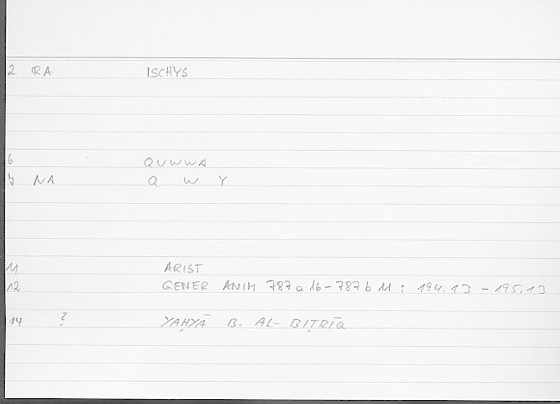 2 RA ISCHYS
6 QUWWA
7 NA Q W Y
11 ARIST
12 GENER ANIM 787a 16-787b 11 : 194.13 - 195.13
14 ? YAḤYĀ B. AL-BIṬRĪQ